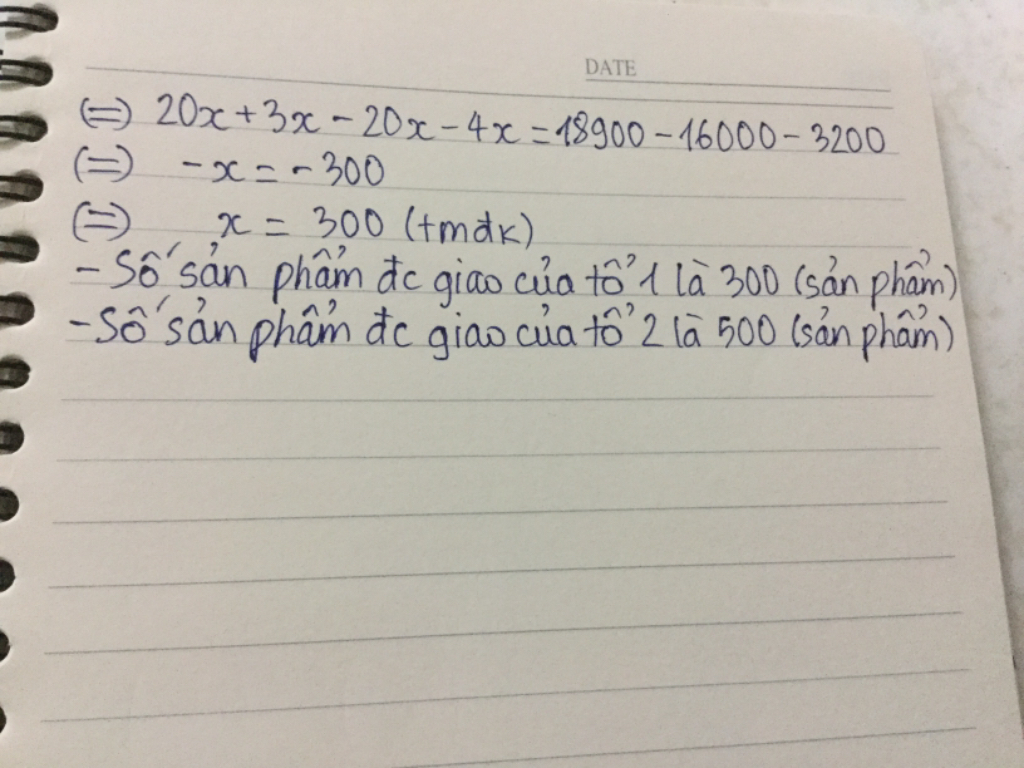 DATE
(=) 20x + 3x - 20x - 4x = 18900 - 16000 - 3200
(=) -x = -300
(=) x = 300 (tmđk)
- Số sản phẩm đc giao của tổ 1 là 300 (sản phẩm)
- Số sản phẩm đc giao của tổ 2 là 500 (sản phẩm)